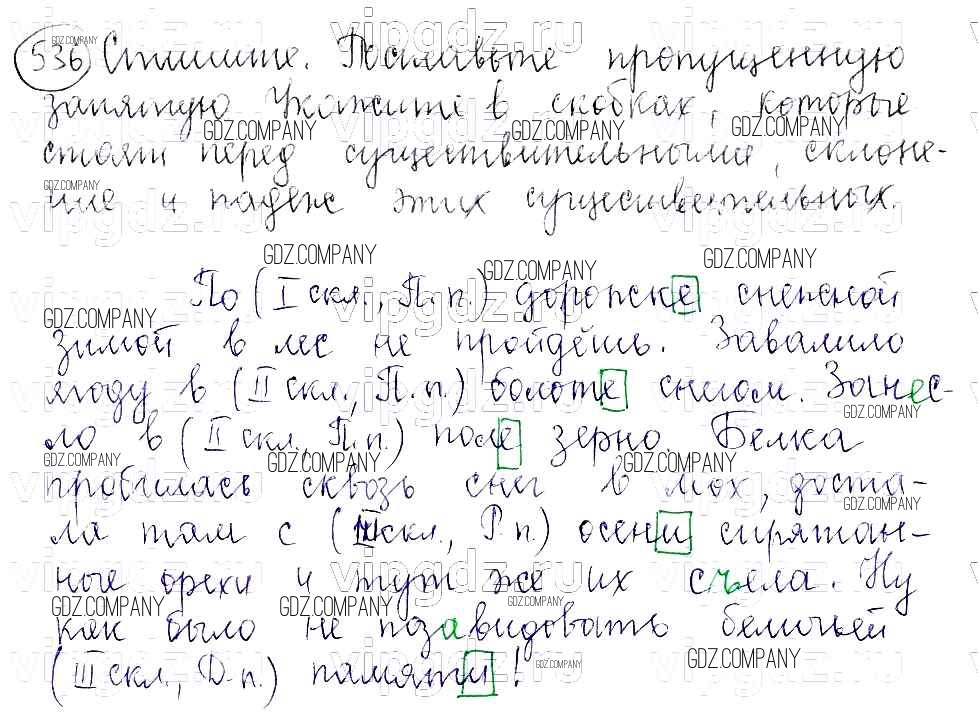 536 Спишите. Поставьте пропущенную
запятую. Укажите в скобках, которые
стоят перед существительными, склоне-
ние и падеж этих существительных.
По (I скл., П.п.) дорожке снежной
зимой в лес не пройдёшь. Завалило
ягоду в (II скл., П.п.) болоте снегом. Занес-
ло в (II скл., П.п.) поле зерно. Белка
пробилась сквозь снег в мох, доста-
ла там с (III скл., Р.п.) осени спрятан-
ные орехи и тут же их съела. Ну
как было не позавидовать беличьей
(III скл., Д.п.) памяти!
vipgdz.ru
GDZ.COMPANY